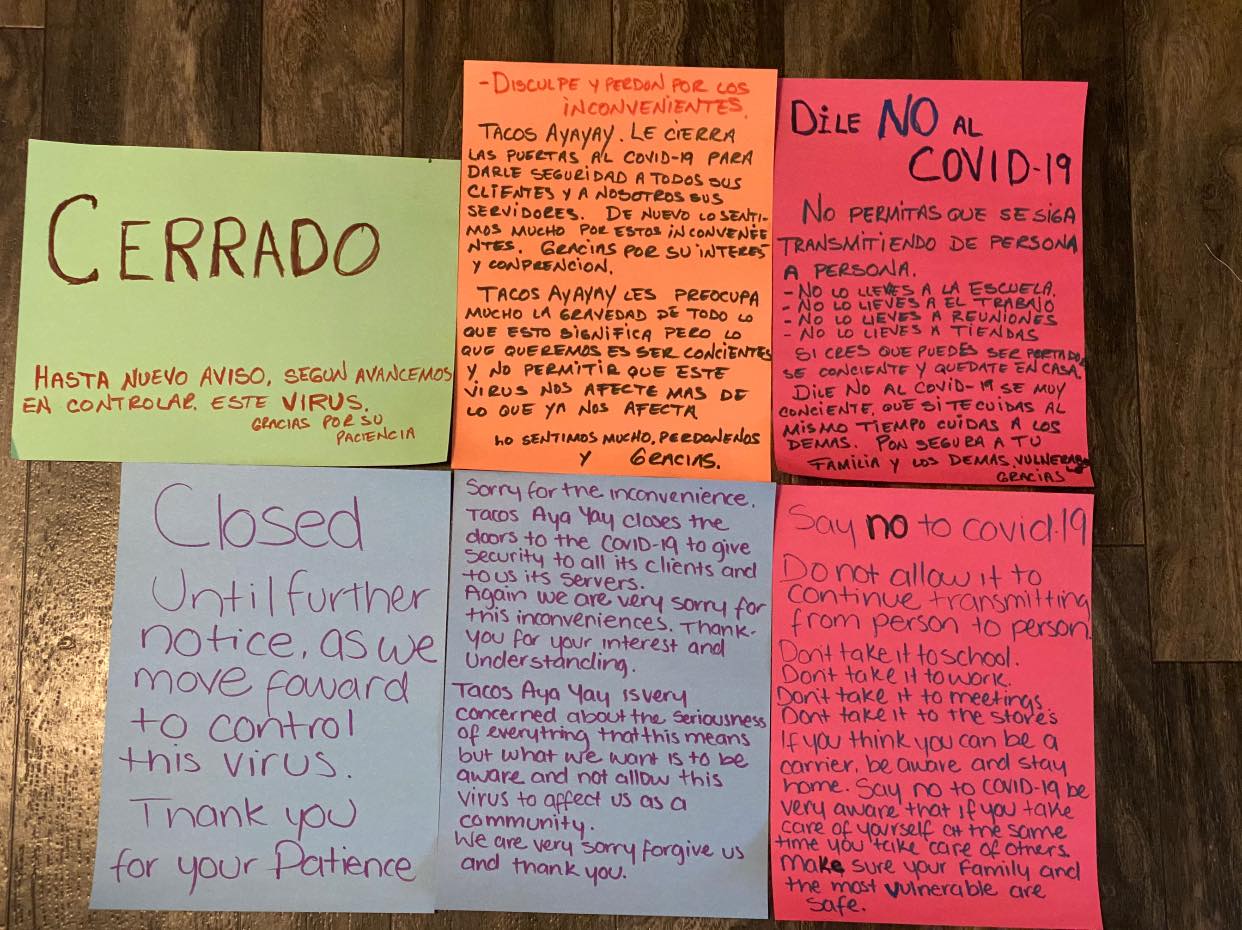 CERRADO
HASTA NUEVO AVISO, SEGUN AVANCEMOS
EN CONTROLAR. ESTE VIRUS.
GRACIAS POR SU
PACIENCIA
- DISCULPE Y PERDON POR LOS
INCONVENIENTES.
TACOS AYAYAY. LE CIERRA
LAS PUERTAS AL COVID-19 PARA
DARLE SEGURIDAD A TODOS SUS
CLIENTES Y A NOSOTROS SUS
SERVIDORES. DE NUEVO LO SENTI-
MOS MUCHO POR ESTOS INCONVENIE
NTES. GRACIAS POR SU INTERES
Y CONPRENCION.
TACOS AYAYAY LES PREOCUPA
MUCHO LA GRAVEDAD DE TODO LO
QUE ESTO SIGNIFICA PERO LO
QUE QUEREMOS ES SER CONCIENTES
Y NO PERMITIR QUE ESTE
VIRUS NOS AFECTE MAS DE
LO QUE YA NOS AFECTA
LO SENTIMOS MUCHO, PERDONENOS
Y GRACIAS.
DILE NO AL
COVID-19
NO PERMITAS QUE SE SIGA
TRANSMITIENDO DE PERSONA
A PERSONA.
- NO LO LLEVES A LA ESCUELA.
- NO LO LLEVES A EL TRABAJO
- NO LO LLEVES A REUNIONES
- NO LO LLEVES A TIENDAS
SI CRES QUE PUEDES SER PORTADOR
SE CONCIENTE Y QUEDATE EN CASA.
DILE NO AL COVID-19 SE MUY
CONCIENTE, QUE SI TE CUIDAS AL
MISMO TIEMPO CUIDAS A LOS
DEMAS. PON SEGURA A TU
FAMILIA Y LOS DEMAS.
GRACIAS
Closed
Until further
notice, as we
move foward
to control
this virus.
Thank you
for your Patience
Sorry for the inconvenience.
Tacos Aya Yay closes the
doors to the COVID-19 to give
security to all its clients and
to us its servers.
Again we are very sorry for
this inconveniences. Thank-
you for your interest and
Understanding.
Tacos Aya Yay is very
concerned about the seriousness
of everything that this means
but what we want is to be
aware and not allow this
virus to affect us as a
community.
We are very sorry forgive us
and thank you.
Say no to covid-19
Do not allow it to
continue transmitting
from person to person.
Don't take it to school.
Don't take it to work.
Don't take it to meetings
Dont take it to the store's
If you think you can be a
carrier, be aware and stay
home. Say no to COVID-19 be
very aware that if you take
care of yourself at the same
time you take care of others.
Make sure your family and
the most vulnerable are
safe.